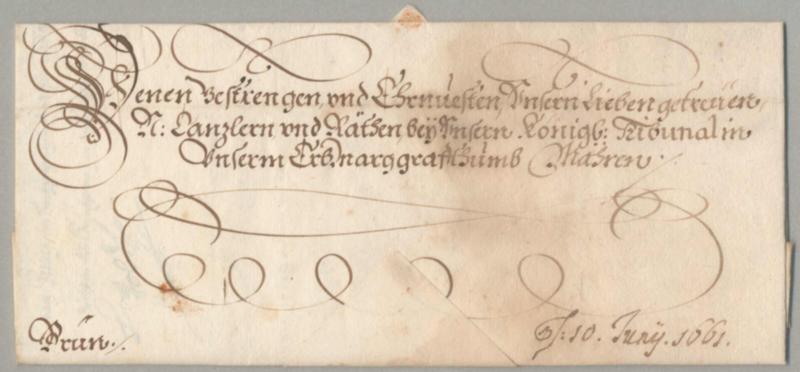 Denen Gestrengen, vnd Ehrnuesten, Vnsern Lieben getreüen,
N: Canzlern vnd Räthen, beÿ Vnsern Königl: Tribunal in
Vnserm Erbmarggrafthumb Mähren.
Brün.
10. Junÿ. 1661.